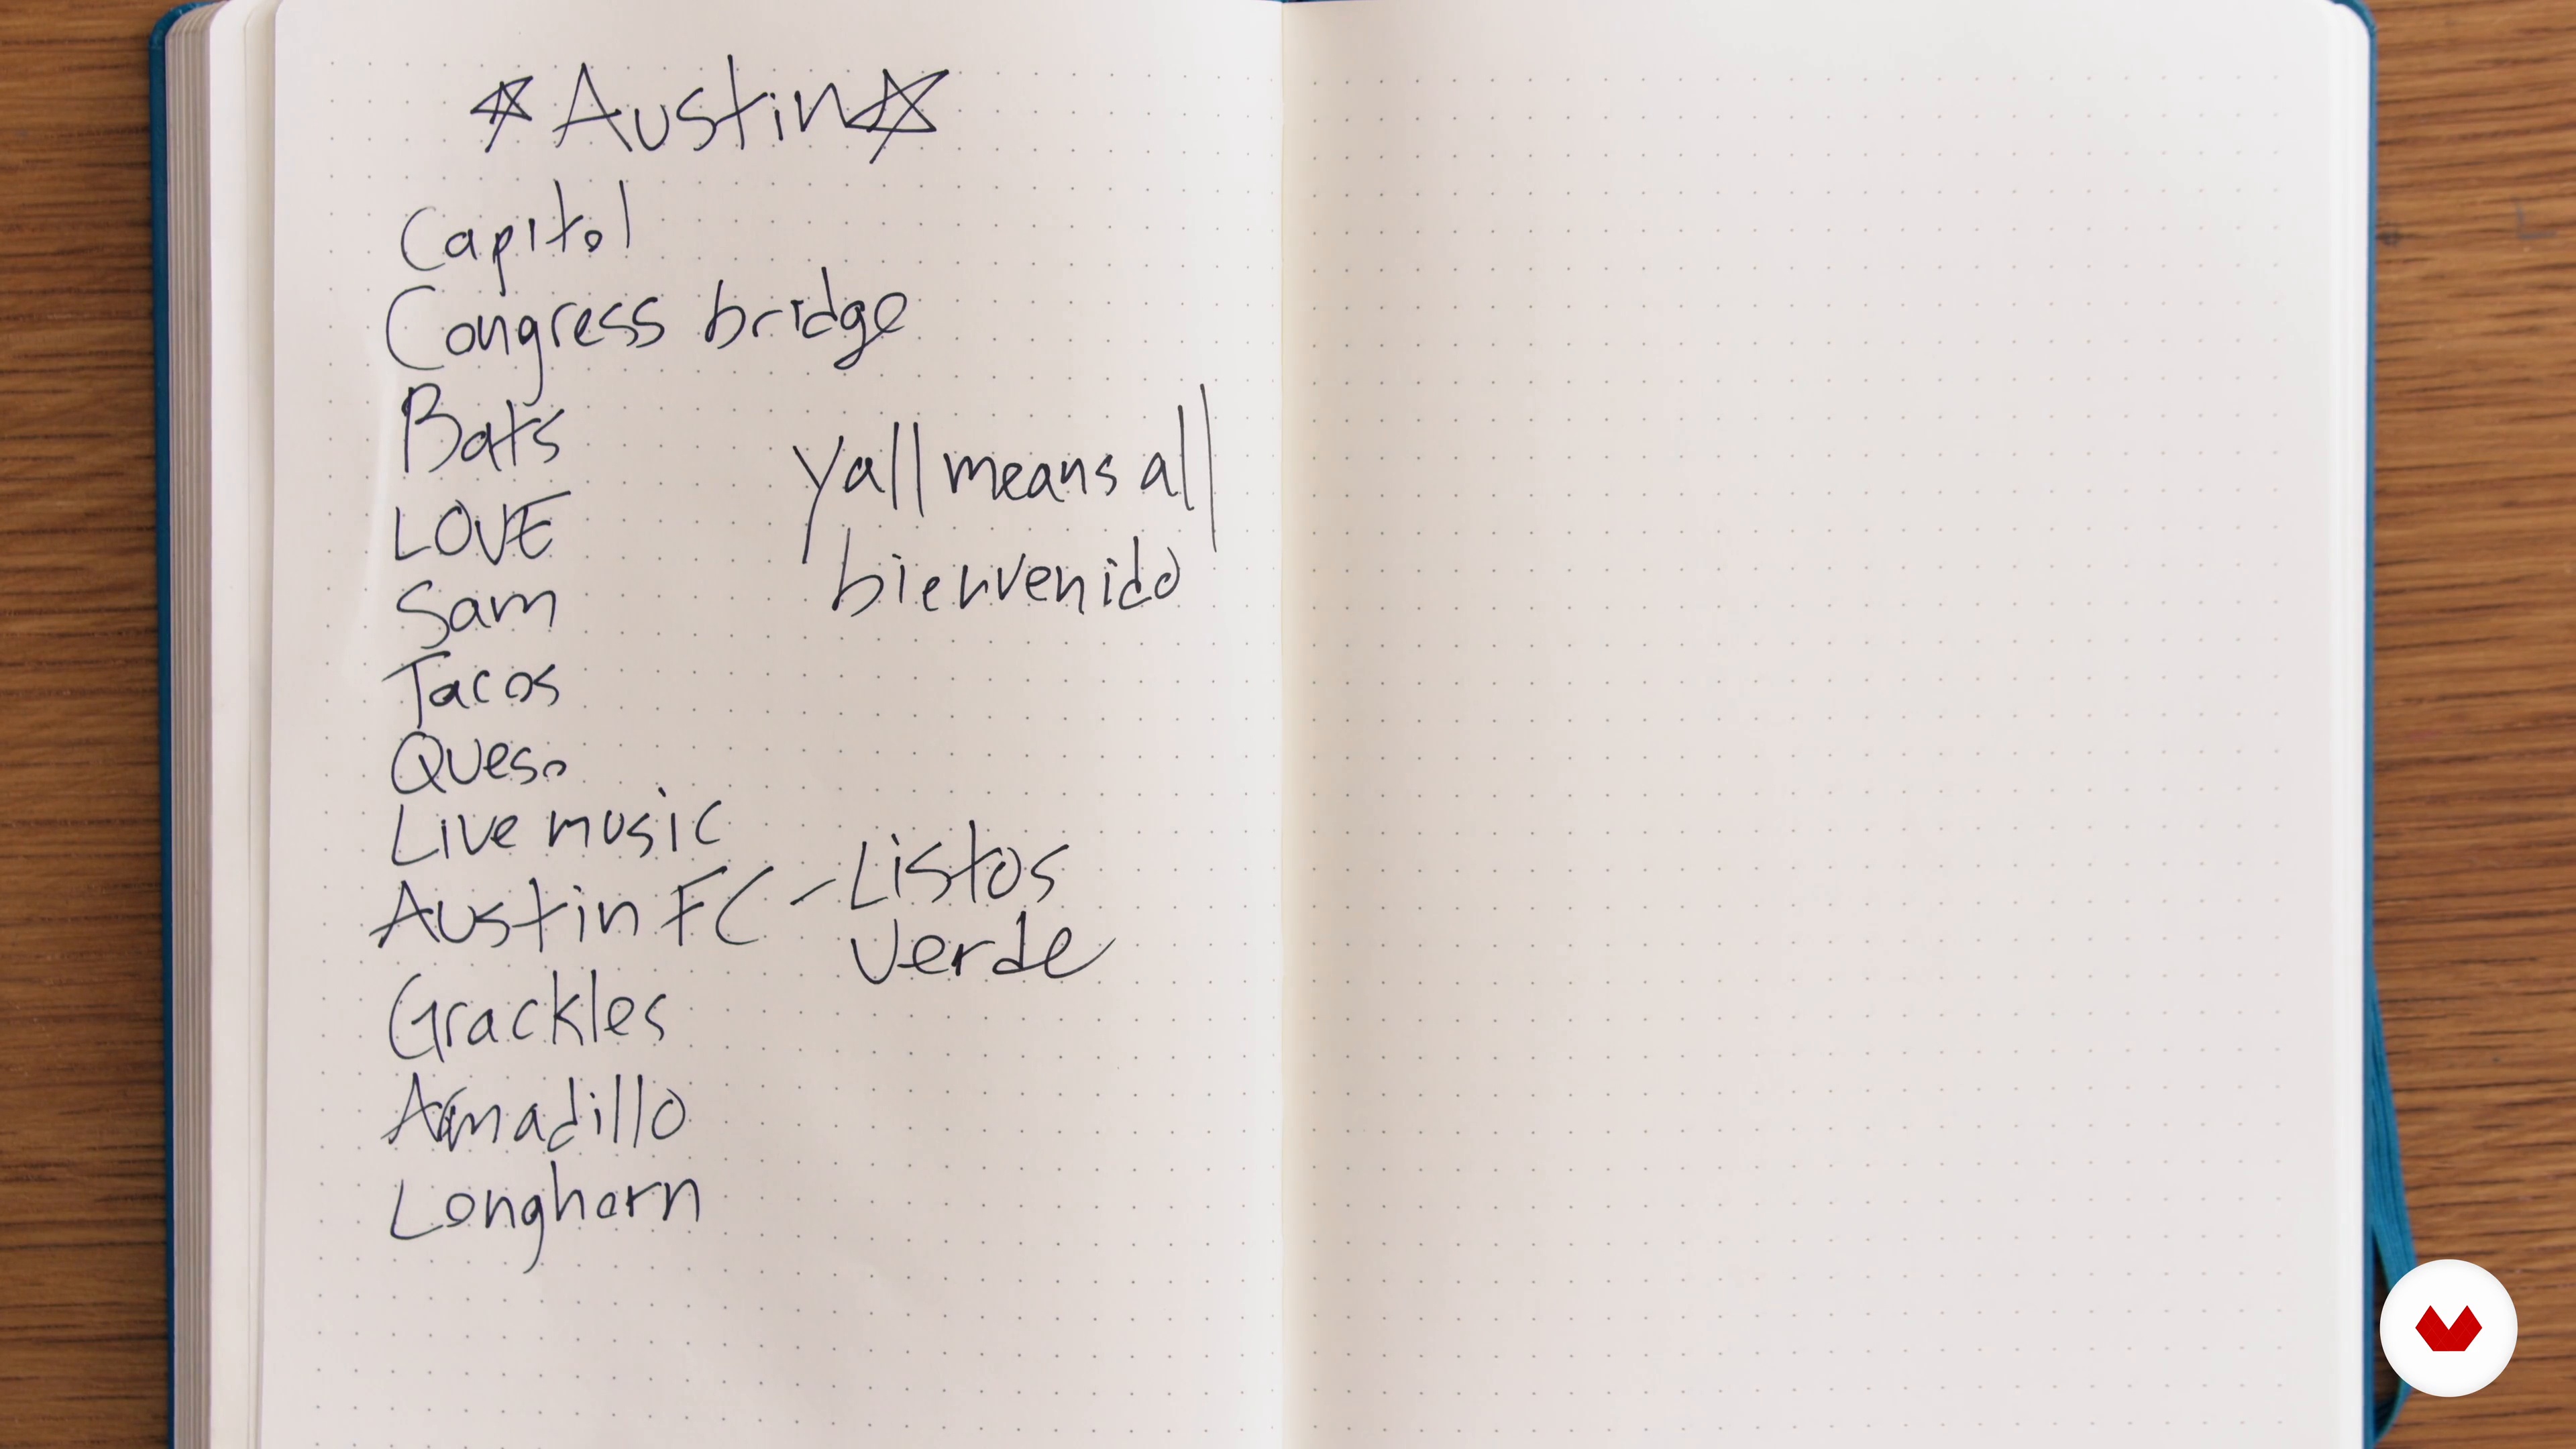 ☆Austin☆
Capitol
Congress bridge
Bats
Yall means all
LOVE
bienvenido
Sam
Tacos
Queso
Live music
Austin FC - Listos
Verde
Grackles
Armadillo
Longhorn